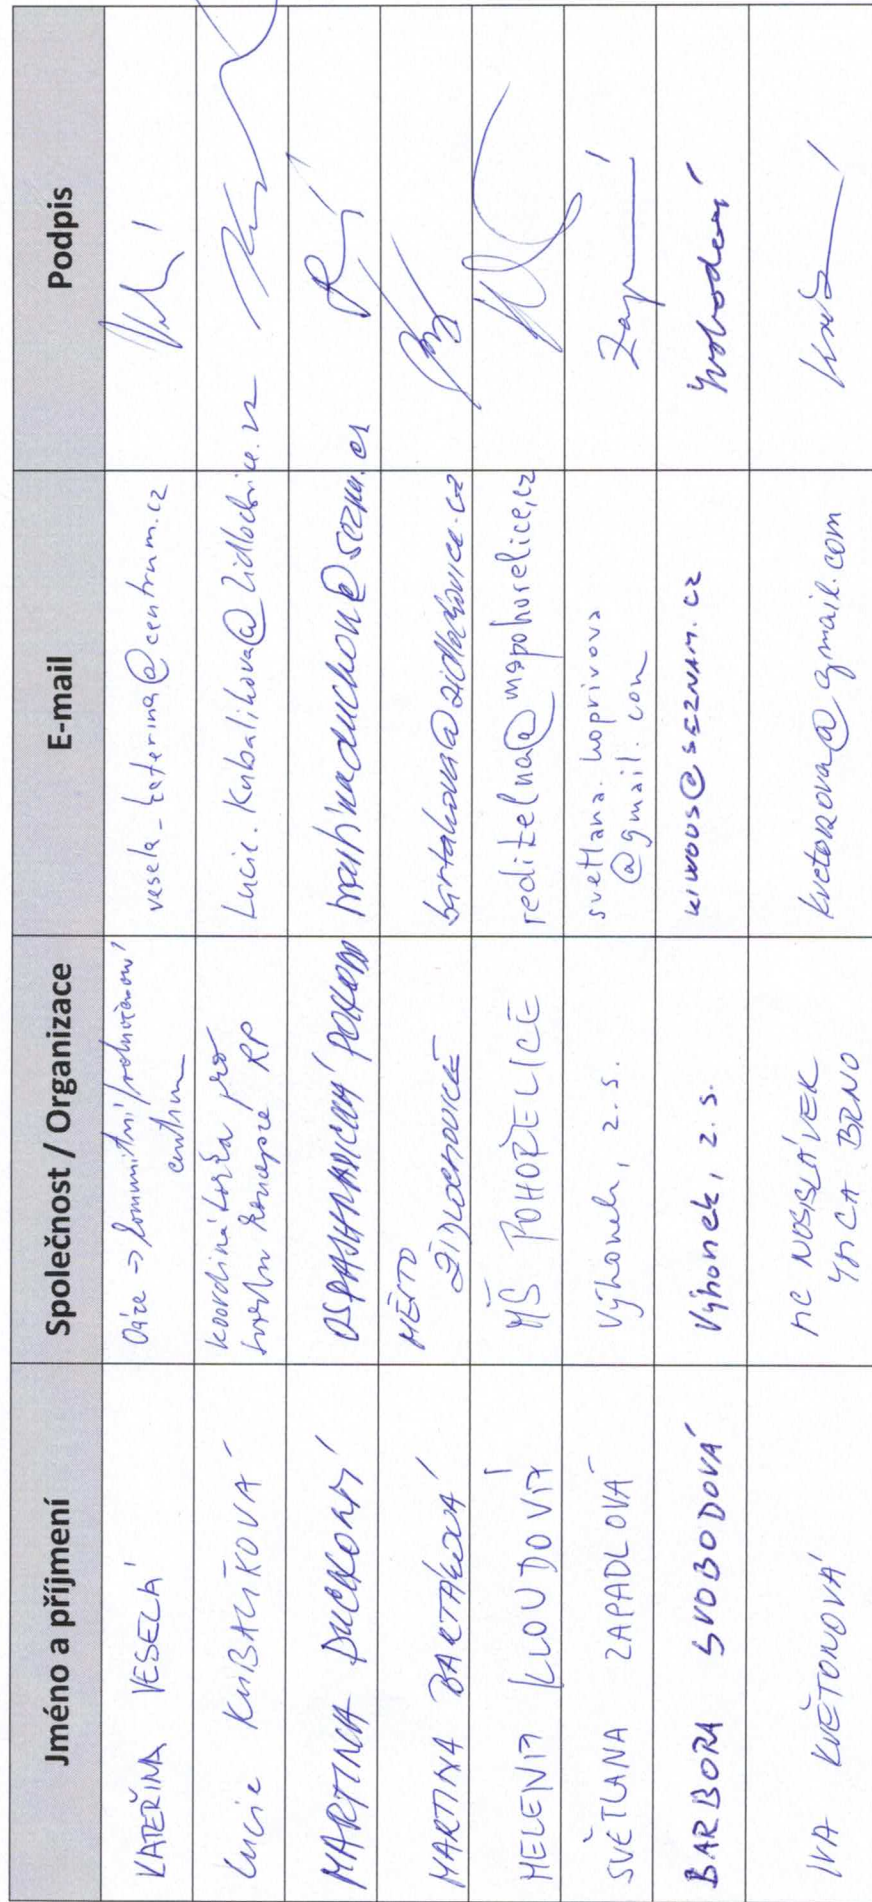 Jméno a příjmení Společnost / Organizace E-mail Podpis
KATEŘINA VESELÁ Oáze -> komunitní/volnočasové vesela_katerina@centrum.cz
centrum
Lucie KUBALÍKOVÁ koordinátorka pro Lucie.Kubalikova@zidlochovice.cz
tvorbu koncepce RP
MARTINA DUCHOŇ martinaduchon@seznam.cz
MARTINA BARTÁKOVÁ MĚSTO bartakova@zidlochovice.cz
ŽIDLOCHOVICE
HELENA KLOUDOVÁ MŠ POHOŘELICE reditelna@mspohorelice.cz
SVĚTLANA ZAPADLOVÁ Výhonek, z.s. svetlana.koprivova
@gmail.com
BARBORA SVOBODOVÁ Výhonek, z.s. KIWOUS@SEZNAM.CZ Svobodová
IVA KVĚTOŇOVÁ MC NOSISLÁVEK kvetonova@gmail.com
YMCA BRNO